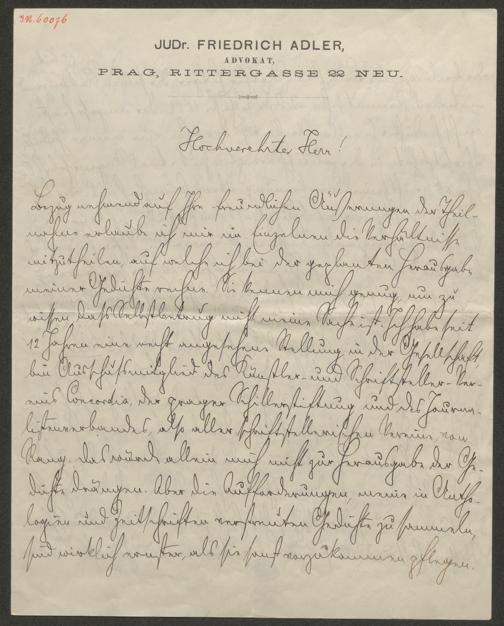 I.N. 60076
JUDr. FRIEDRICH ADLER,
ADVOKAT,
PRAG, RITTERGASSE 22 NEU.
Hochverehrter Herr!
Bezug nehmend auf Ihre freundlichen Äußerungen der Theil-
nahme erlaube ich mir im Einzelnen die Verhältnisse
mitzutheilen, auf welche ich bei der geplanten Herausgabe
meiner Gedichte rechne. Sie kennen mich genug, um zu
wissen daß Selbstbetrug nicht meine Sache ist. Ich habe seit
12 Jahren eine recht angesehene Stellung in der Gesellschaft
bin Ausschußmitglied des Künstler- und Schriftsteller-Ver-
eins Concordia, der prager Schillerstiftung und des Journa-
listenverbandes, also aller schriftstellerischen Vereine von
Rang. Das würde allein mich nicht zur Herausgabe der Ge-
dichte drängen. Aber die Aufforderungen, meine in Antho-
logien und Zeitschriften verstreuten Gedichte zu sammeln,
sind wirklich ernster, als sie sonst vorzukommen pflegen.